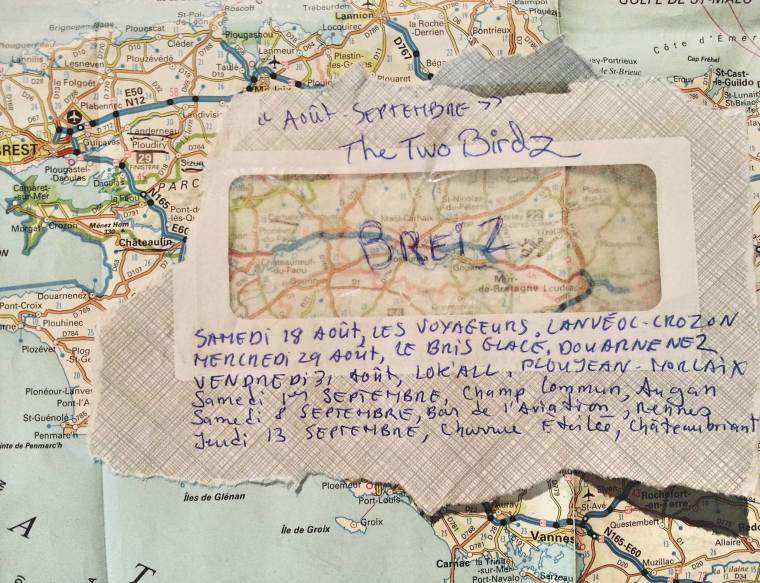 « Août - SEPTEMBRE »
The Two Birdz
BREIZ
SAMEDI 18 AOÛT, LES VOYAGEURS, LANVÉOL-CROZON
MERCREDI 29 AOÛT, LE BRIS GLACE, DOUARNENEZ
VENDREDI 31 AOÛT, LOK'ALL, PLOUJEAN-MORLAIX
Samedi 1er SEPTEMBRE, Champ Commun, Augan
Samedi 8 SEPTEMBRE, Bar de l'Aviation, Rennes
Jeudi 13 SEPTEMBRE, Charrue Etoilée, Châteaubriant
GOLFE DE ST-MALO
Roscoff
Trébeurden
Lannion
Plouescat
Cléder
Plougasnou
Lanmeur
Locquirec
la Roche-Derrien
Pontrieux
Côte d'Émer
Cap Fréhel
St-Cast-le-Guildo
Erquy
Plouézévédé
Taulé
Plestin-les-
Plouaret
Bég
D767
le Folgoët
Plabennec
E50
N12
Landivisi
Landerneau
Ploudiry
Sizun
Guipavas
BREST
Plougastel-Daoulas
Daoulas
29
FINISTÈRE
PARC
Camaret-sur-Mer
le Faou
N165
Pont-de-
E60
Morgat
Crozon
Ménez Hom
330
Châteaulin
Douarnenez
Pont-Croix
Plouhinec
Plozévet
Plonéour-Lanv
Pont-l'A
St-Guénolé
Penmarc'h
Pointe de Penmarc'h
St-Nicolas-du-Pélem
Maël-Carhaix
22
Châteauneuf-du-Faou
Gourin
Mûr-de-Bretagne
Loudéac
Îles de Glénan
Île de Groix
Groix
Ploemeur
Port-Louis
Auray
Carnac
la Trinité-sur-Mer
Port-Navalo
Sarzeau
Vannes
St-Avé
N165-E60
Questembert
Muzillac
Rochefort-en-Terre
Allaire
Redo
la Vilaine
A
T